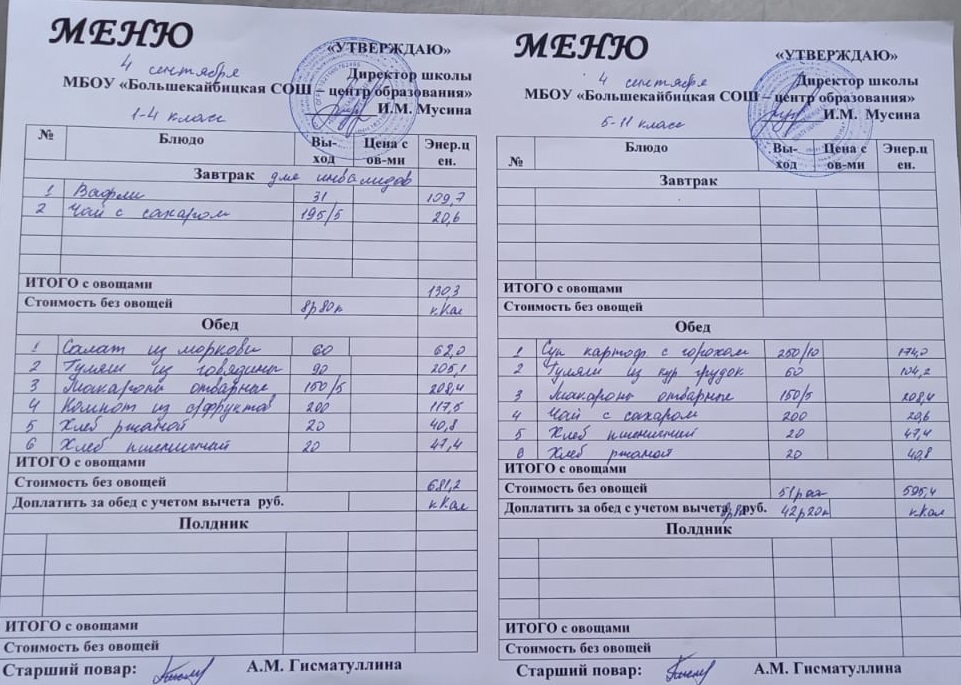 МЕНЮ
«УТВЕРЖДАЮ»
4 сентября
Директор школы
МБОУ «Большекайбицкая СОШ – центр образования»
И.М. Мусина
1-4 класс
№ Блюдо Вы-ход Цена с ов-ми Энер.ц ен.
Завтрак для инвалидов
1 Вафли 31 109,7
2 Чай с сахаром 195/5 20,6
ИТОГО с овощами 130,3
Стоимость без овощей 8р80к кКал
Обед
1 Салат из моркови 60 62,0
2 Гуляш из говядины 90 205,1
3 Макароны отварные 150/5 208,4
4 Компот из с/фруктов 200 117,5
5 Хлеб ржаной 20 40,8
6 Хлеб пшеничный 20 47,4
ИТОГО с овощами
Стоимость без овощей 681,2
Доплатить за обед с учетом вычета руб. кКал
Полдник
ИТОГО с овощами
Стоимость без овощей
Старший повар: А.М. Гисматуллина
МЕНЮ
«УТВЕРЖДАЮ»
4 сентября
Директор школы
МБОУ «Большекайбицкая СОШ – центр образования»
И.М. Мусина
5-11 класс
№ Блюдо Вы-ход Цена с ов-ми Энер.ц ен.
Завтрак
ИТОГО с овощами
Стоимость без овощей
Обед
1 Суп картоф. с горохом 250/10 174,0
2 Гуляш из кур грудок 60 104,2
3 Макароны отварные 150/5 208,4
4 Чай с сахаром 200 20,6
5 Хлеб пшеничный 20 47,4
6 Хлеб ржаной 20 40,8
ИТОГО с овощами
Стоимость без овощей 51р 595,4
Доплатить за обед с учетом вычета 8р80к руб. 42р20к кКал
Полдник
ИТОГО с овощами
Стоимость без овощей
Старший повар: А.М. Гисматуллина